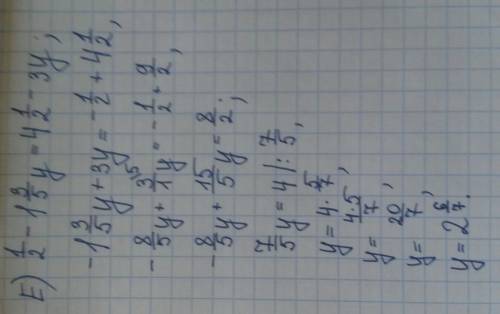 E) 1/2 - 1 3/5 y = 4 1/2 - 3y;
-1 3/5 y + 3y = -1/2 + 4 1/2;
-8/5 y + 3/1 ^5 y = -1/2 + 9/2;
-8/5 y + 15/5 y = 8/2;
7/5 y = 4 | : 7/5;
y = 4 · 5/7;
y = 4·5/7;
y = 20/7;
y = 2 6/7.